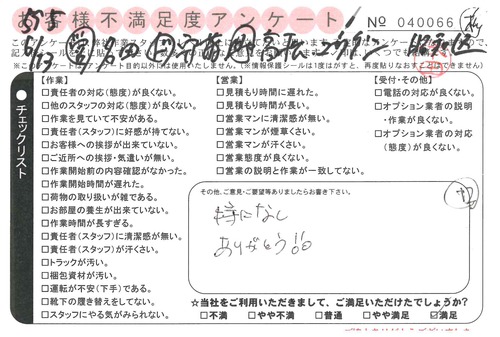 お客様不満足度アンケート
No 040066
※このアンケートはアンケート目的以外には使用いたしません。(※情報保護シールは1度はがすと、再度貼りなおすことはできません)
チェックリスト
【作業】
□責任者の対応(態度)が良くない。
□他のスタッフの対応(態度)が良くない。
□作業を見ていて不安がある。
□責任者(スタッフ)に好感が持てない。
□お客様への挨拶が出来ていない。
□ご近所への挨拶・気遣いが無い。
□作業開始前の内容確認がなかった。
□作業開始時間が遅れた。
□荷物の取り扱いが雑である。
□お部屋の養生が出来ていない。
□作業時間が長すぎる。
□責任者(スタッフ)に清潔感が無い。
□責任者(スタッフ)が汗くさい。
□トラックが汚い。
□梱包資材が汚い。
□運転が不安(下手)である。
□靴下の履き替えをしてない。
□スタッフにやる気がみられない。
【営業】
□見積もり時間に遅れた。
□見積もり時間が長い。
□営業マンに清潔感が無い。
□営業マンが煙草くさい。
□営業マンが汗くさい。
□営業態度が良くない。
□営業の説明と作業が一致してない。
【受付・その他】
□電話の対応が良くない。
□オプション業者の説明
・作業が良くない。
□オプション業者の対応
(態度)が良くない。
その他、ご意見・ご要望等ありましたらお書き下さい。
特になし
ありがとう!!
☆当社をご利用いただきまして、ご満足いただけたでしょうか?
□不満 □やや不満 □普通 □やや満足 ☑満足